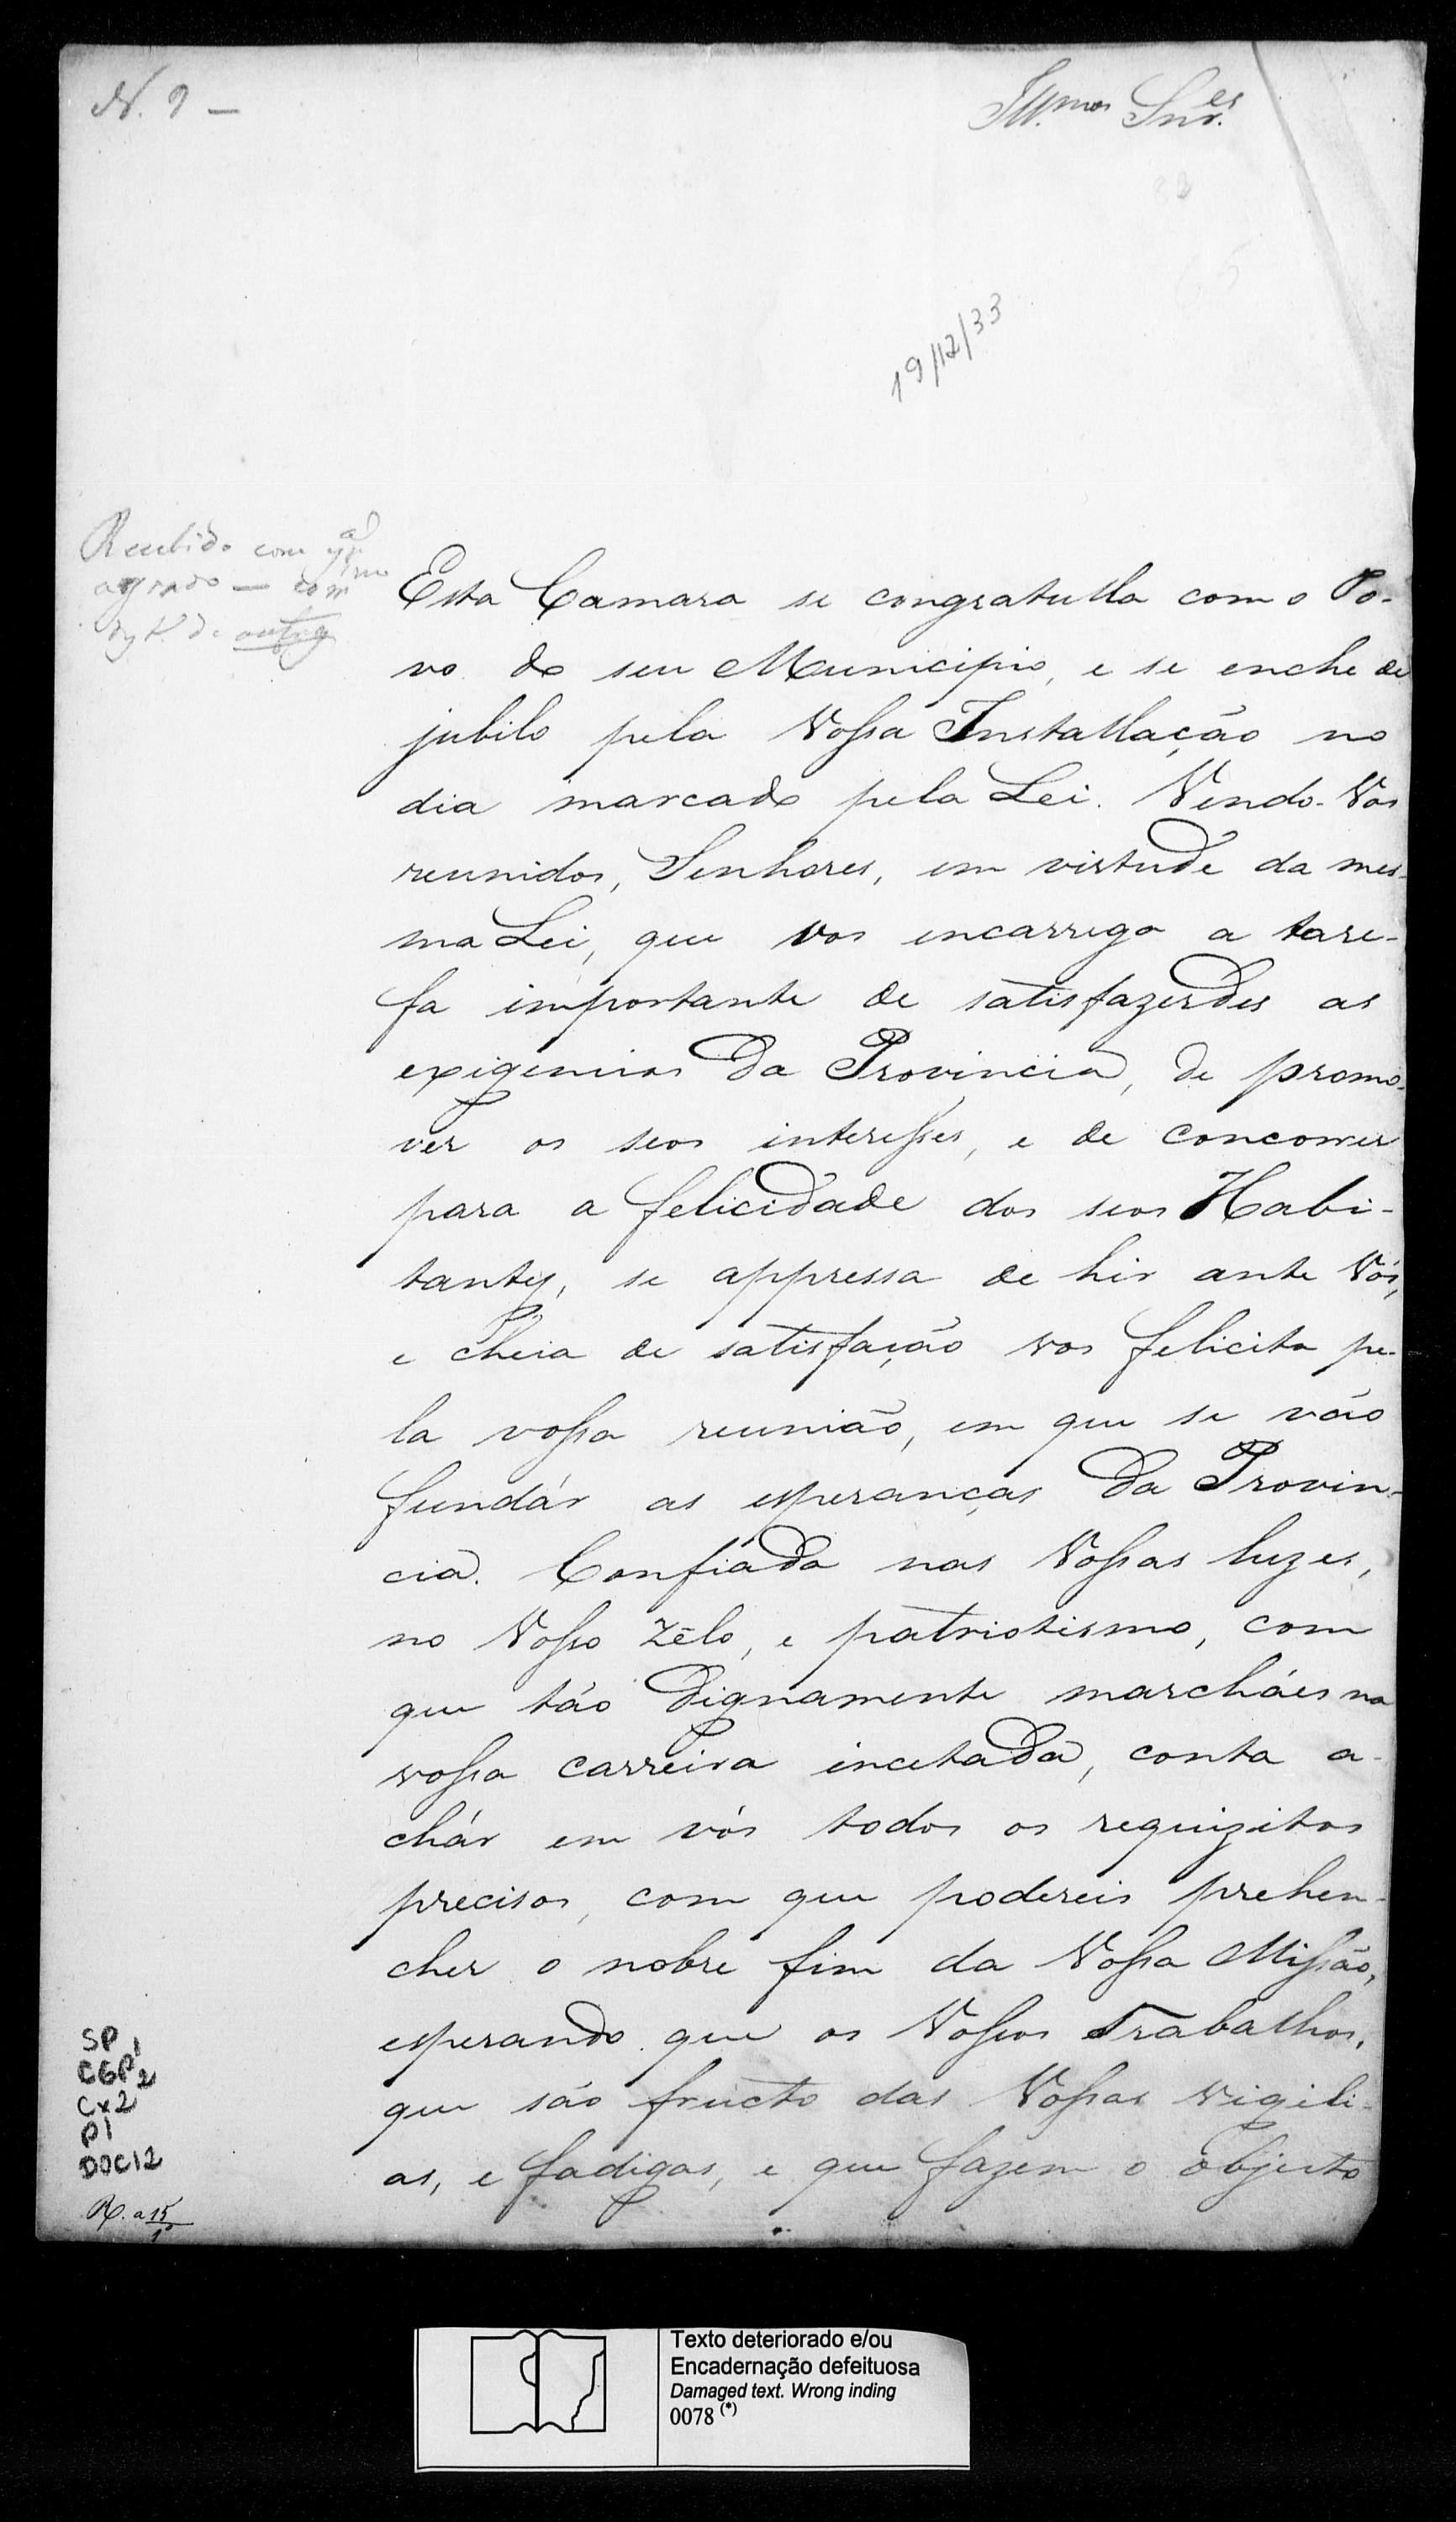 N. 9 —
Ill.mos Snr.es
19/12/33
Recebido com
agrado — com
de
Esta Camara se congratulla com o Po-
vo do seu Municipio, e se enche de
jubilo pela Vossa Installação no
dia marcado pela Lei. Vendo-Vos
reunidos, Senhores, em virtude da mes-
ma Lei, que vos encarrega a tare-
fa importante de satisfazerdes as
exigencias da Provincia, de promo-
ver os seos interesses, e de concorrer
para a felicidade dos seos Habi-
tantes, se appressa de hir ante Vós,
e cheia de satisfação vos felicita pe-
la vossa reunião, em que se vão
fundár as esperanças da Provin-
cia. Confiada nas Vossas luzes,
no Vosso zêlo, e patriotismo, com
que tão dignamente marcháes na
vossa carreira incetada, conta a-
chár em vós todos os requizitos
precisos, com que podereis prehen-
cher o nobre fim da Vossa Missão,
esperando que os Vossos Trabalhos,
que são fructo das Vossas vigili-
as, e fadigas, e que fazem o objecto
SP1
CGP2
Cx2
P1
DOC12
R. a 15
Texto deteriorado e/ou
Encadernação defeituosa
Damaged text. Wrong inding
0078 (*)